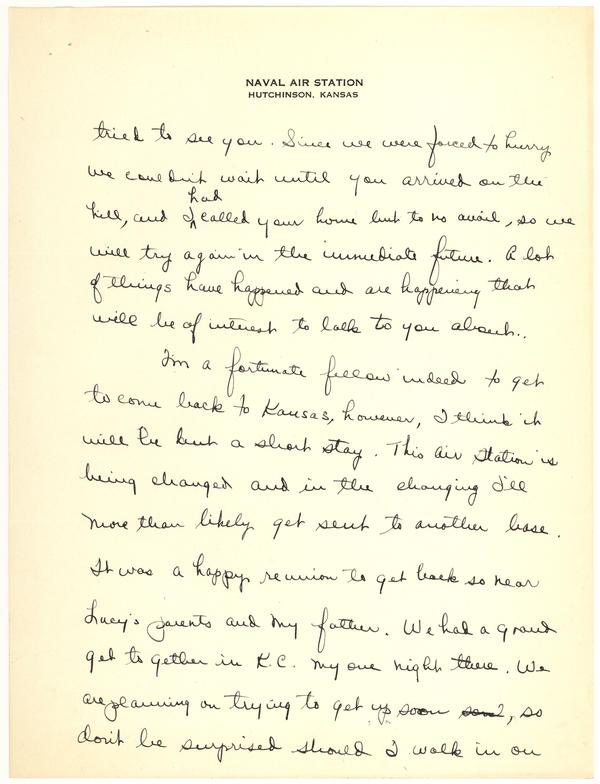 NAVAL AIR STATION
HUTCHINSON, KANSAS
tried to see you. Since we were forced to hurry
we couldn't wait until you arrived on the
had
hill, and I called your home but to no avail, so we
will try again in the immediate future. A lot
of things have happened and are happening that
will be of interest to talk to you about..
I'm a fortunate fellow indeed to get
to come back to Kansas, however, I think it
will be but a short stay. This Air Station is
being changed and in the changing I'll
more than likely get sent to another base.
It was a happy reunion to get back so near
Lucy's parents and my father. We had a grand
get to gether in K.C. my one night there. We
are planning on trying to get up soon, so
don't be surprised should I walk in on